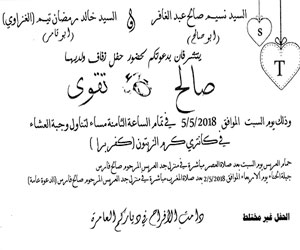 السيد نسيم صالح عبد الغافر & السيد خالد رمضان تيم (الغزاوي)
(ابو صالح) (ابو تامر)
يتشرفان بدعوتكم لحضور حفل زفاف ولديهما
صالح & تقوى
S T
وذلك يوم السبت الموافق 5/5/2018 في تمام الساعة الثامنة مساء لتناول وجبة العشاء
في كانتري كرم الزيتون (كفر برا)
حمام العريس يوم السبت بعد صلاة العصر مباشرة في منزل جد العريس المرحوم صالح فارس
حفلة الحناء يوم الاربعاء الموافق 2/5/2018 بعد صلاة المغرب مباشرة في منزل جد العريس المرحوم صالح فارس (الدعوة عامة)
دامت الأفراح في دياركم العامرة
الحفل غير مختلط